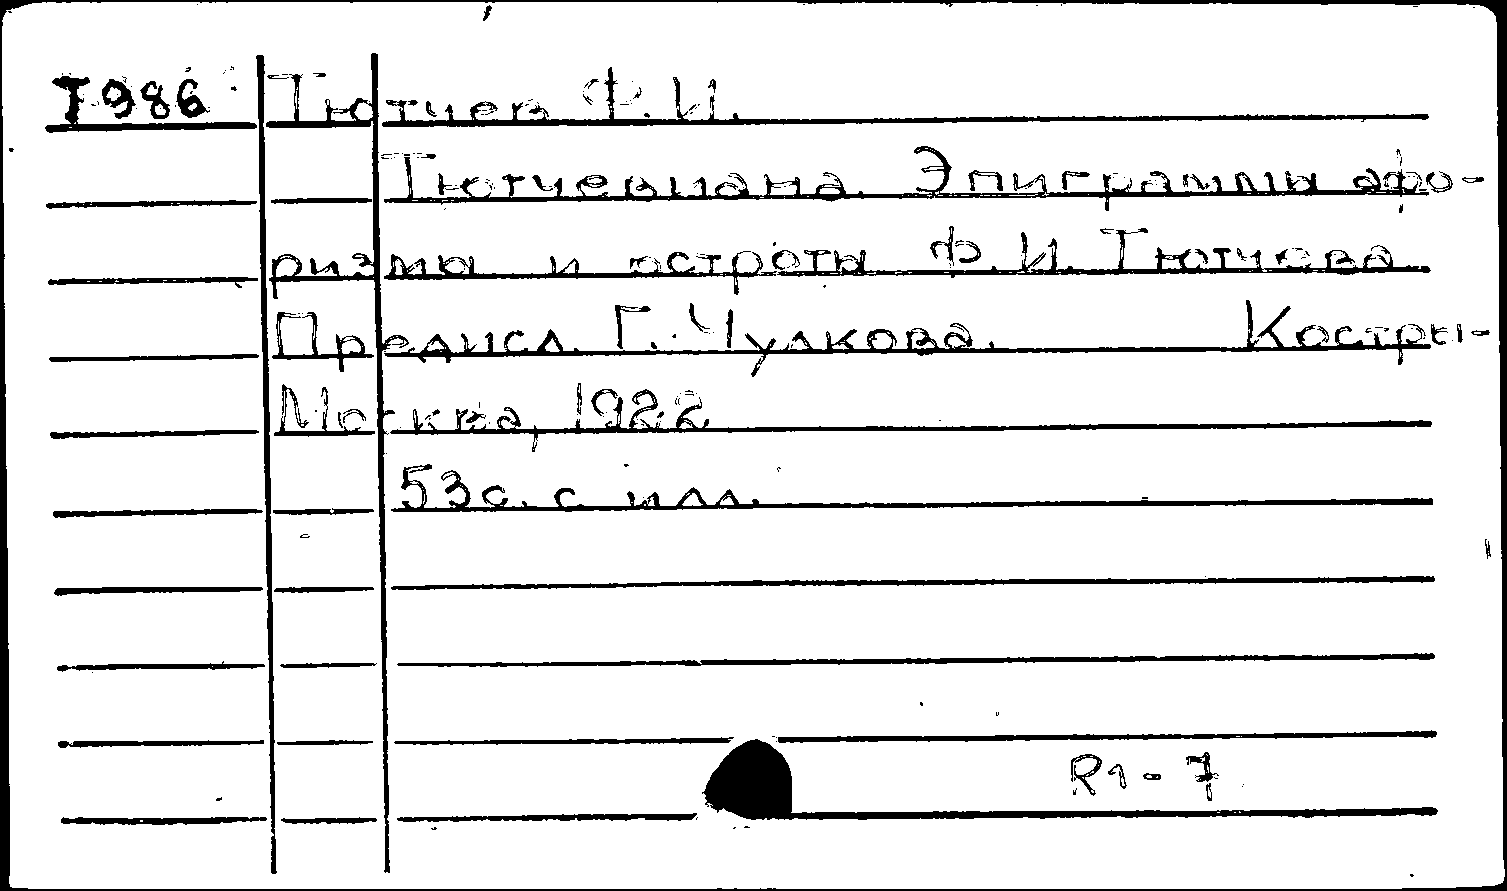 T986 Тютчев Ф.И.
Тютчевиана. Эпиграммы афо-
ризмы и остроты Ф.И. Тютчева
Предисл. Г. Чулкова. Костры-
Москва, 1922
53с. с илл.
R1-7